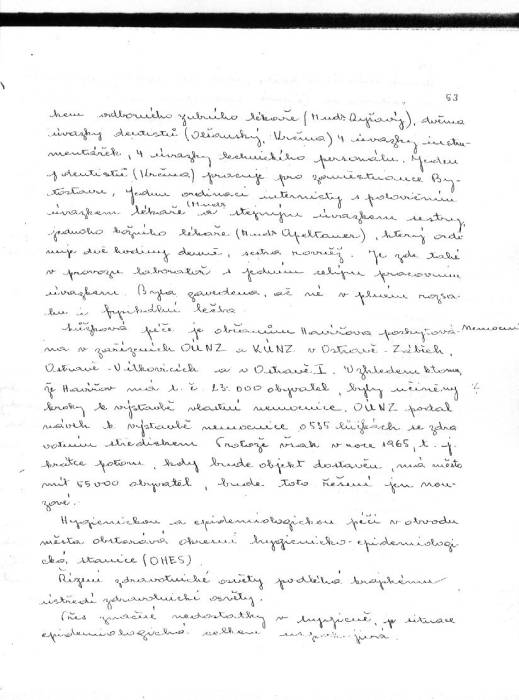 63
kem odborného zubního lékaře (Mudr Dyňavý), dvěma
úvazky dentistů (Olšanský, Krčma) 4 úvazky instru-
mentářek, 4 úvazky technického personálu. Jeden
z dentistů (Krčma) pracuje pro zaměstnance By-
tostavu, jednu ordinaci internisty s polovičním
úvazkem lékaře (Mudr a stejným úvazkem sestry,
jednoho kožního lékaře (Mudr Apeltauer), který ordi-
nuje dvě hodiny denně, sestra rovněž. Je zde také
v provozu laboratoř s jedním celým pracovním
úvazkem. Byla zavedena, ač ne v plném rozsa-
hu i fysikální léčba.
Lůžková péče je občanům Havířova poskytová- Nemocni
na v zařízeních OÚNZ a KÚNZ v Ostravě-Zábřeh,
Ostravě-Vítkovicích a v Ostravě I. Vzhledem k tomu,
že Havířov má t. č. 23.000 obyvatel, byly učiněny
kroky k výstavbě vlastní nemocnice. OÚNZ podal
návrh k výstavbě nemocnice o 535 lůžkách se zdra
votním střediskem. Protože však v roce 1965, t. j.
krátce potom, kdy bude objekt dostavěn, má město
mít 55 000 obyvatel, bude toto řešení jen nou-
zové.
Hygienickou a epidemiologickou péči v obvodu
města obstarává okresní hygienicko-epidemiologi-
cká stanice (OHES).
Řízení zdravotnické osvěty podléhá krajskému
ústředí zdravotnické osvěty.
Přes značné nedostatky v hygieně, je situace
epidemiologická celkem uspokojivá.